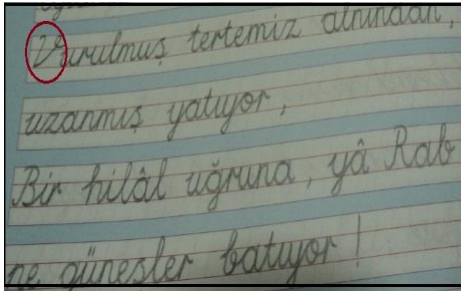 Vurulmuş tertemiz alnından,
uzanmış yatıyor,
Bir hilâl uğruna, yâ Rab
ne güneşler batıyor!